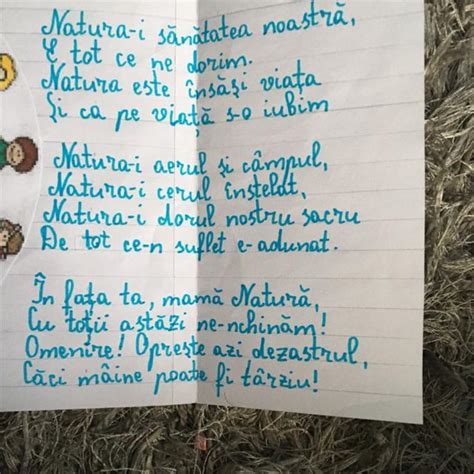 Natura-i sănătatea noastră,
E tot ce ne dorim.
Natura este însăși viața
Și ca pe viață s-o iubim
Natura-i aerul și câmpul,
Natura-i cerul înstelat,
Natura-i dorul nostru sacru
De tot ce-n suflet e-adunat.
În fața ta, mamă Natură,
Cu toții astăzi ne-nchinăm!
Omenire! Oprește azi dezastrul,
Căci mâine poate fi târziu!